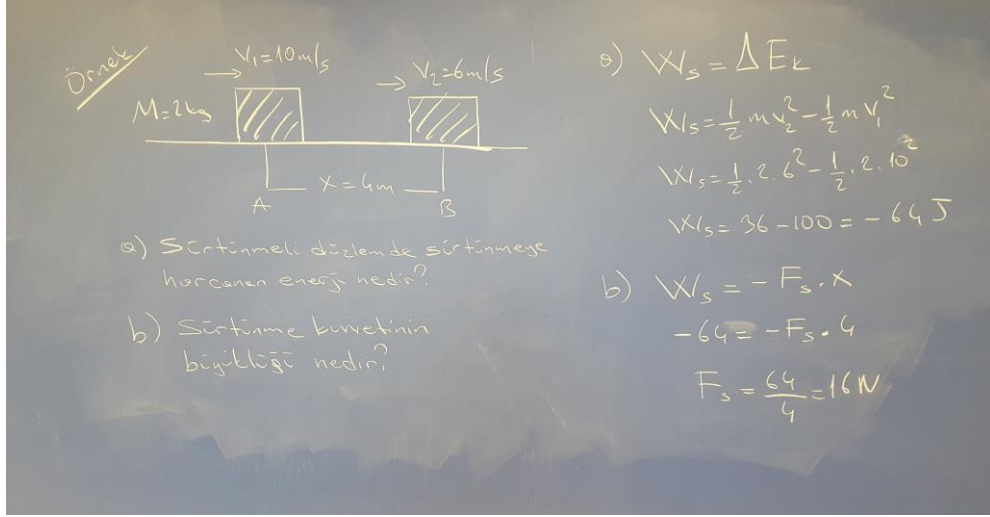 Örnek
V₁=10m/s
V₂=6m/s
M=2kg
X=4m
A
B
a) Sürtünmeli düzlemde sürtünmeye
harcanan enerji nedir?
b) Sürtünme kuvvetinin
büyüklüğü nedir?
a) Wₛ = ΔEₖ
Wₛ = 1/2 m v₂² - 1/2 m v₁²
Wₛ = 1/2 . 2 . 6² - 1/2 . 2 . 10²
Wₛ = 36 - 100 = - 64 J
b) Wₛ = - Fₛ . X
-64 = -Fₛ . 4
Fₛ = 64/4 = 16 N